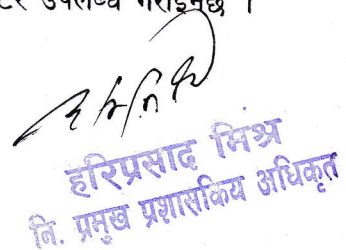 टर उपलब्ध गराइनेछ ।
हरिप्रसाद मिश्र
नि. प्रमुख प्रशासकिय अधिकृत